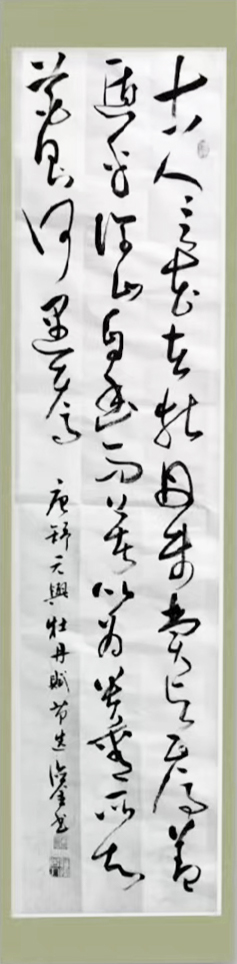 古人言花者牡丹未嘗與焉蓋
遁乎深山自幽而著以為貴重所知
花則何遇焉
唐舒元輿牡丹賦節選 書